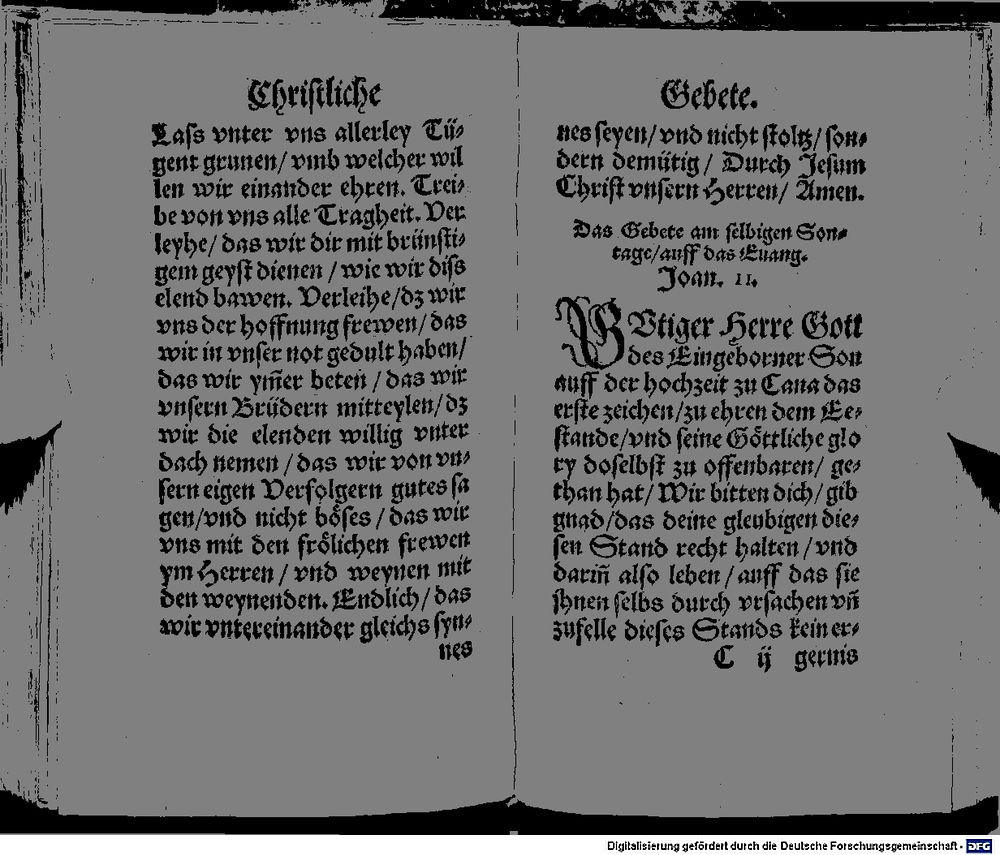 Christliche
Lass vnter vns allerley Tü⸗
gent grunen/ vmb welcher wil
len wir einander ehren. Trei⸗
be von vns alle Tragheit. Ver
leyhe/ das wir dir mit brünsti⸗
gem geyst dienen / wie wir diss
elend bawen. Verleihe/ dz wir
vns der hoffnung frewen/ das
wir in vnser not gedult haben/
das wir ym̃er beten / das wir
vnsern Brüdern mitteylen/ dz
wir die elenden willig vnter
dach nemen / das wir von vn⸗
sern eigen Verfolgern gutes sa
gen/vnd nicht böses / das wir
vns mit den frölichen frewen
ym Herren / vnd weynen mit
den weynenden. Endlich/ das
wir vntereinander gleichs syn⸗
nes
Gebete.
nes seyen/ vnd nicht stoltz/ son⸗
dern demütig / Durch Jesum
Christ vnsern Herren/ Amen.
Das Gebete am selbigen Son⸗
tage/auff das Euang.
Joan. 11.
GVtiger Herre Gott
des Eingeborner Son
auff der hochzeit zu Cana das
erste zeichen/zu ehren dem Ee⸗
stande/vnd seine Göttliche glo
ry doselbst zu offenbaren/ ge⸗
than hat/ Wir bitten dich/ gib
gnad/das deine gleubigen die⸗
sen Stand recht halten / vnd
dariñ also leben / auff das sie
jhnen selbs durch vrsachen vñ
zufelle dieses Stands kein er⸗
C ij gernis
Digitalisierung gefördert durch die Deutsche Forschungsgemeinschaft - DFG